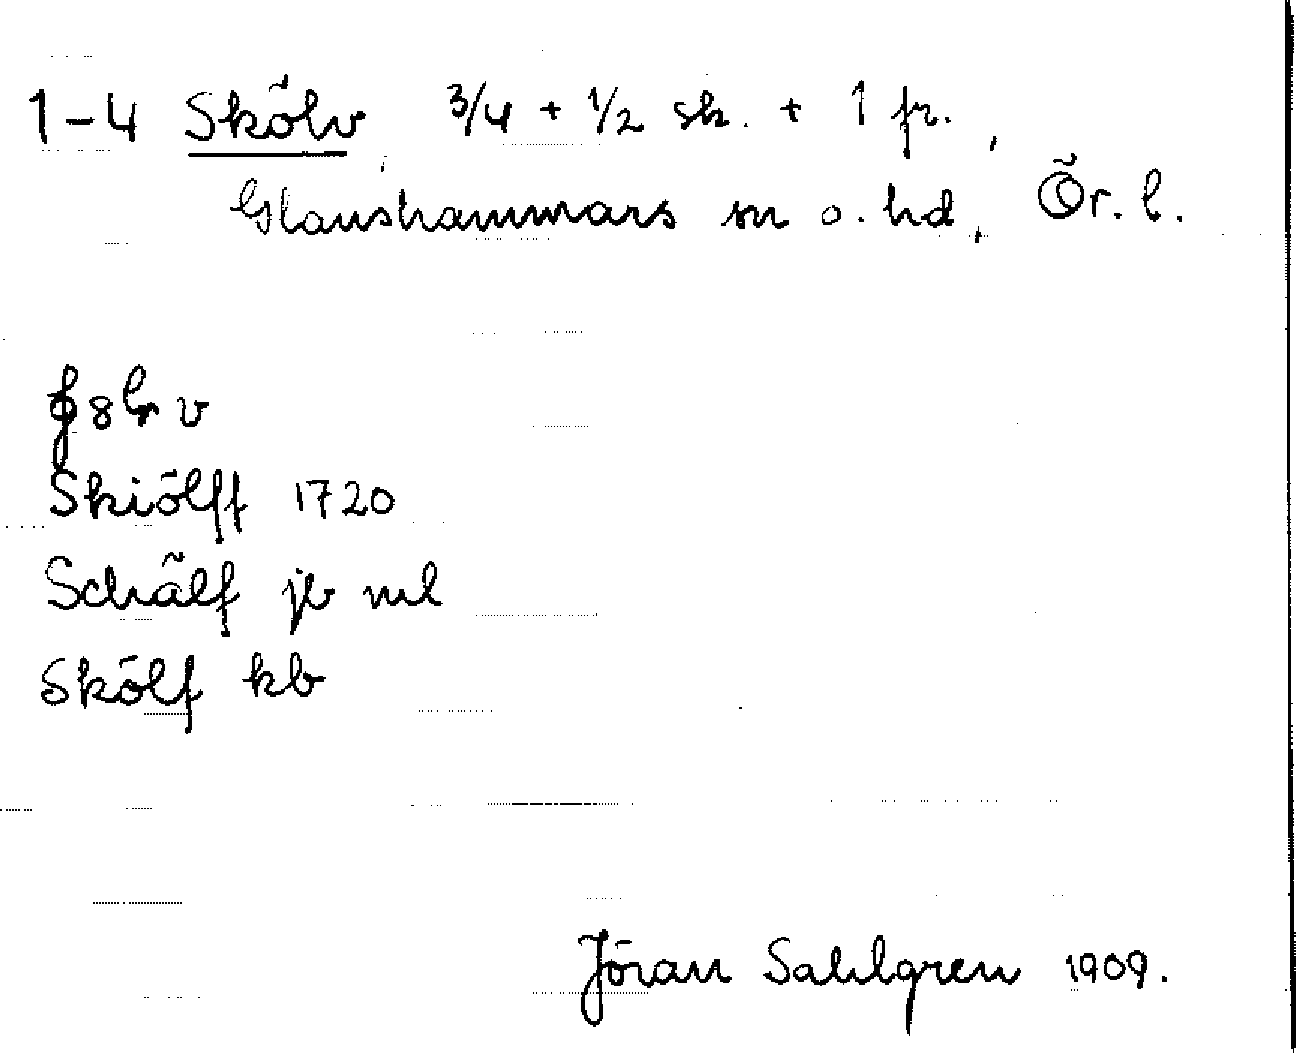 1-4 Skölv, 3/4 + 1/2 sk. + 1 fr.,
Glanshammars sn o. hd, Ör. l.
Skiölff 1720
Schälf jb ml
Skölf kb
Jöran Sahlgren 1909.